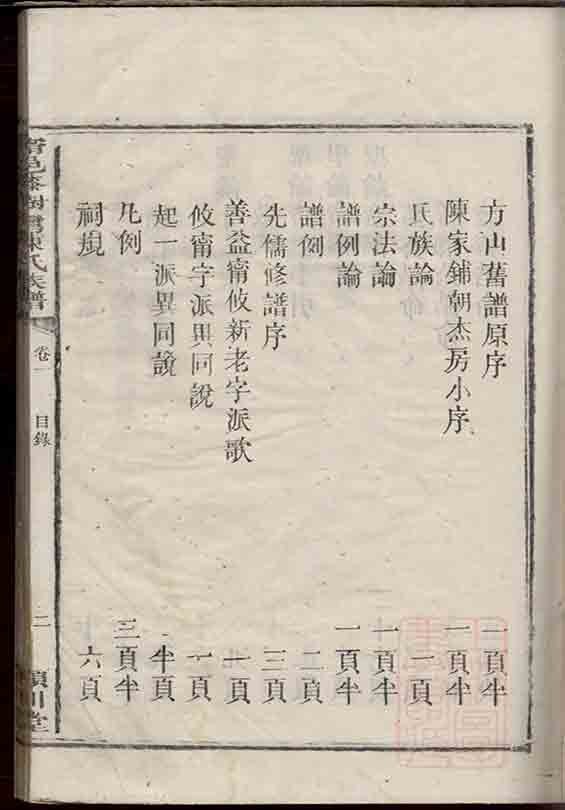 方山舊譜原序 一頁半
陳家鋪朝杰房小序 一頁半
氏族論 一頁
宗法論 一頁半
譜例論 一頁半
譜例 二頁
先儒修譜序 三頁
善益甯攸新老字派歌 一頁
攸甯字派異同說 一頁
起一派異同說 半頁
凡例 三頁半
祠規 六頁
陳氏族譜
卷一
目錄
二
潁川堂